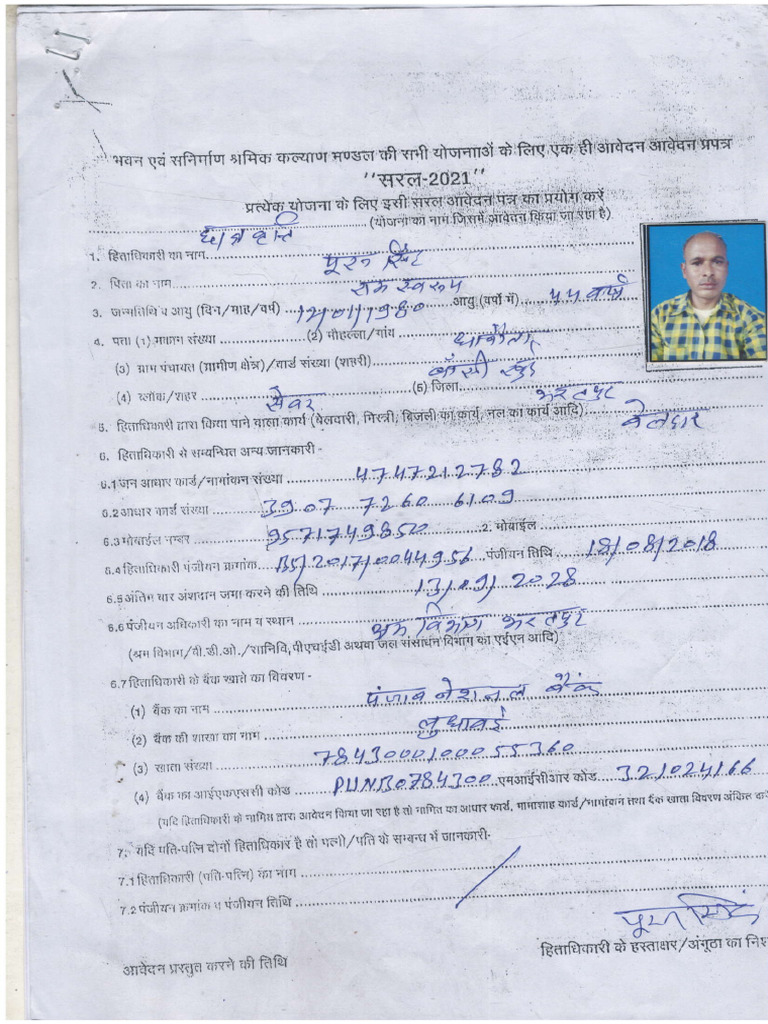 भवन एवं सनिर्माण श्रमिक कल्याण मण्डल की सभी योजनााओं के लिए एक ही आवेदन आवेदन प्रपत्र
"सरल-2021"
प्रत्येक योजना के लिए इसी सरल आवेदन पत्र का प्रयोग करें
छात्रवृत्ति (योजना का नाम जिसमें आवेदन किया जा रहा है)
1. हिताधिकारी का नाम पूरन सिंह
2. पिता का नाम राम स्वरूप
3. जन्मतिथि व आयु (दिन/माह/वर्ष) 12/01/1980 आयु (वर्षो में) 44 वर्ष
4. पता (1) मकान संख्या (2) मौहल्ला/गांव
(3) ग्राम पंचायत (ग्रामीण क्षेत्र)/वार्ड संख्या (शहरी) बॉसी खुर्द
(4) ब्लॉक/शहर सेवर (5) जिला भरतपुर
5. हिताधिकारी द्वारा किया पाने वाला कार्य (बेलदारी, मिस्त्री, बिजली का कार्य, नल का कार्य आदि) बेलदार
6. हिताधिकारी से सम्बन्धित अन्य जानकारी -
6.1 जन आधार कार्ड/नामांकन संख्या 4747212782
6.2 आधार कार्ड संख्या 3907 7260 6109
6.3 मोबाईल नम्बर 9571749850 2. मोबाईल
6.4 हिताधिकारी पंजीयन क्रमांक B5/2017/0044956 पंजीयन तिथि 18/08/2018
6.5 अंतिम बार अंशदान जमा करने की तिथि 13/09/2028
6.6 पंजीयन अधिकारी का नाम व स्थान श्रम विभाग भरतपुर
(श्रम विभाग/बी.डी.ओ./सानिवि, पीएचईडी अथवा जल संसाधन विभाग का एईएन आदि)
6.7 हिताधिकारी के बैंक खाते का विवरण -
(1) बैंक का नाम पंजाब नेशनल बैंक
(2) बैंक की शाखा का नाम लुधावई
(3) खाता संख्या 7843000100055360
(4) बैंक का आईएफएससी कोड PUNB0784300 एमआईसीआर कोड 321024166
(यदि हिताधिकारी के नामित द्वारा आवेदन किया जा रहा है तो नामित का आधार कार्ड, भामाशाह कार्ड/नामांकन तथा बैंक खाता विवरण अंकित
7. यदि पति-पत्नि दोनों हिताधिकार है तो पत्नी/पति के सम्बन्ध में जानकारी-
7.1 हिताधिकारी (पति-पत्नि) का नाम
7.2 पंजीयन क्रमांक व पंजीयन तिथि
पूरन सिंह
हिताधिकारी के हस्ताक्षर/अंगूठा का निश
आवेदन प्रस्तुत करने की तिथि